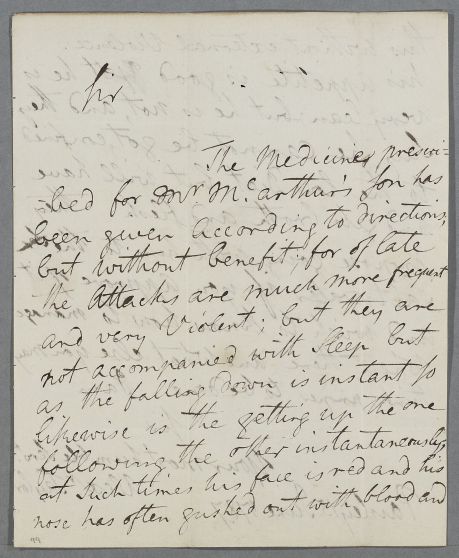 Sir
The Medicines prescri=
bed for Mr. Mc.arthur's Son has
been given according to directions,
but without benefit; for of late
the Attacks are much more frequent
and very Violent; but they are
not accompanied with Sleep but
as the falling down is instant so
likewise is the getting up the one
following the other instantaneously,
at Such times his face is red and his
nose has often gushed out with blood and